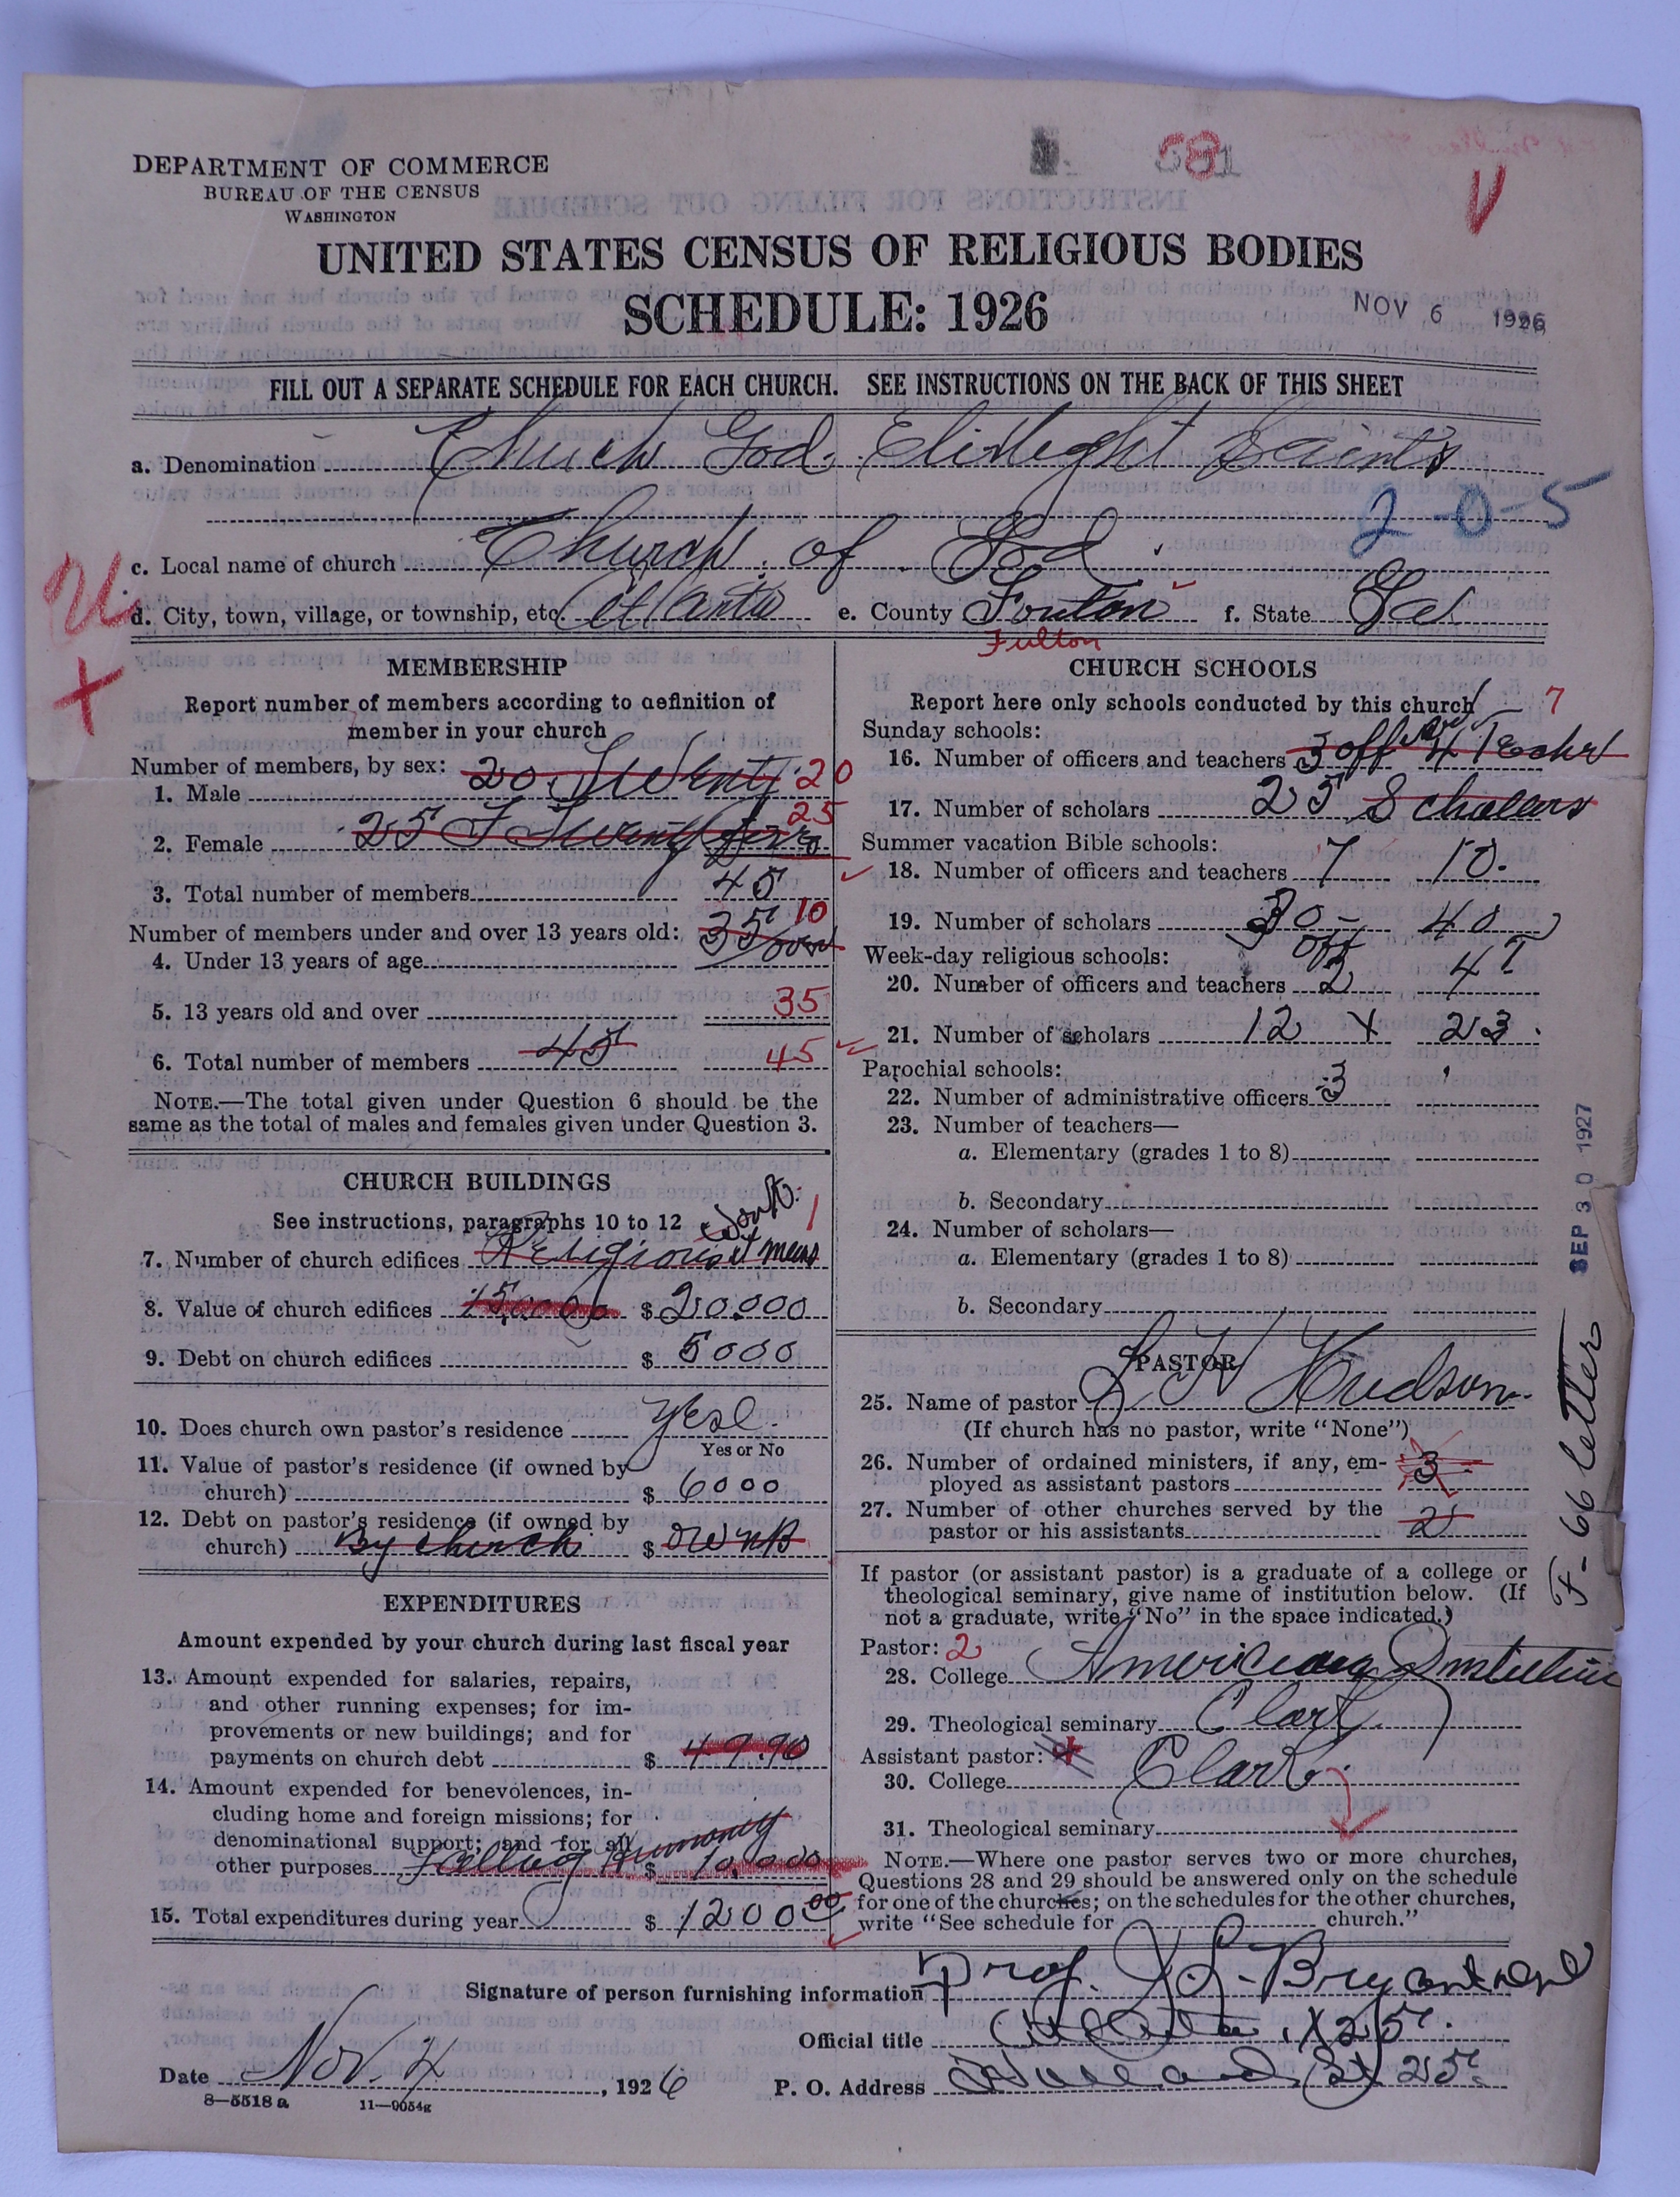 DEPARTMENT OF COMMERCE
BUREAU OF THE CENSUS
WASHINGTON
UNITED STATES CENSUS OF RELIGIOUS BODIES
SCHEDULE: 1926
NOV 6 1926
FILL OUT A SEPARATE SCHEDULE FOR EACH CHURCH. SEE INSTRUCTIONS ON THE BACK OF THIS SHEET
a. Denomination Church God. Saints
2-0-5
c. Local name of church Church of God.
d. City, town, village, or township, etc. Atlanta e. County Fouton f. State Ga
Fulton
MEMBERSHIP
Report number of members according to definition of
member in your church
Number of members, by sex:
1. Male 20 Twenty 20
2. Female 25 Twenty five 25
3. Total number of members 45
Number of members under and over 13 years old: 35 over 10
4. Under 13 years of age
5. 13 years old and over 35
6. Total number of members 45 45
NOTE.—The total given under Question 6 should be the
same as the total of males and females given under Question 3.
CHURCH BUILDINGS
See instructions, paragraphs 10 to 12
7. Number of church edifices Religious 1
8. Value of church edifices $ 20.000
9. Debt on church edifices $ 5000
10. Does church own pastor's residence Yes
Yes or No
11. Value of pastor's residence (if owned by
church) $ 6000
12. Debt on pastor's residence (if owned by
church) By church $
EXPENDITURES
Amount expended by your church during last fiscal year
13. Amount expended for salaries, repairs,
and other running expenses; for im-
provements or new buildings; and for
payments on church debt $ 49.90
14. Amount expended for benevolences, in-
cluding home and foreign missions; for
denominational support; and for all
other purposes $
15. Total expenditures during year $ 1200 00
CHURCH SCHOOLS
Report here only schools conducted by this church
Sunday schools: 7
16. Number of officers and teachers 3 off 4
17. Number of scholars 25 Scholars
Summer vacation Bible schools:
18. Number of officers and teachers 7 10.
19. Number of scholars 30 - 40
Week-day religious schools: off T
20. Number of officers and teachers 2 4
21. Number of scholars 12 x 23.
Parochial schools:
22. Number of administrative officers 3
23. Number of teachers—
a. Elementary (grades 1 to 8)
b. Secondary
24. Number of scholars—
a. Elementary (grades 1 to 8)
b. Secondary
PASTOR
25. Name of pastor Hudson
(If church has no pastor, write "None")
26. Number of ordained ministers, if any, em-
ployed as assistant pastors 3
27. Number of other churches served by the
pastor or his assistants 2
If pastor (or assistant pastor) is a graduate of a college or
theological seminary, give name of institution below. (If
not a graduate, write "No" in the space indicated.)
Pastor: 2
28. College
29. Theological seminary Clark
Assistant pastor:
30. College Clark
31. Theological seminary
NOTE.—Where one pastor serves two or more churches,
Questions 28 and 29 should be answered only on the schedule
for one of the churches; on the schedules for the other churches,
write "See schedule for church."
Signature of person furnishing information Prof. Bryant
Official title
Date Nov. 4, 1926 P. O. Address
8—5518 a 11—9054g
SEP 30 1927
F-66 letter